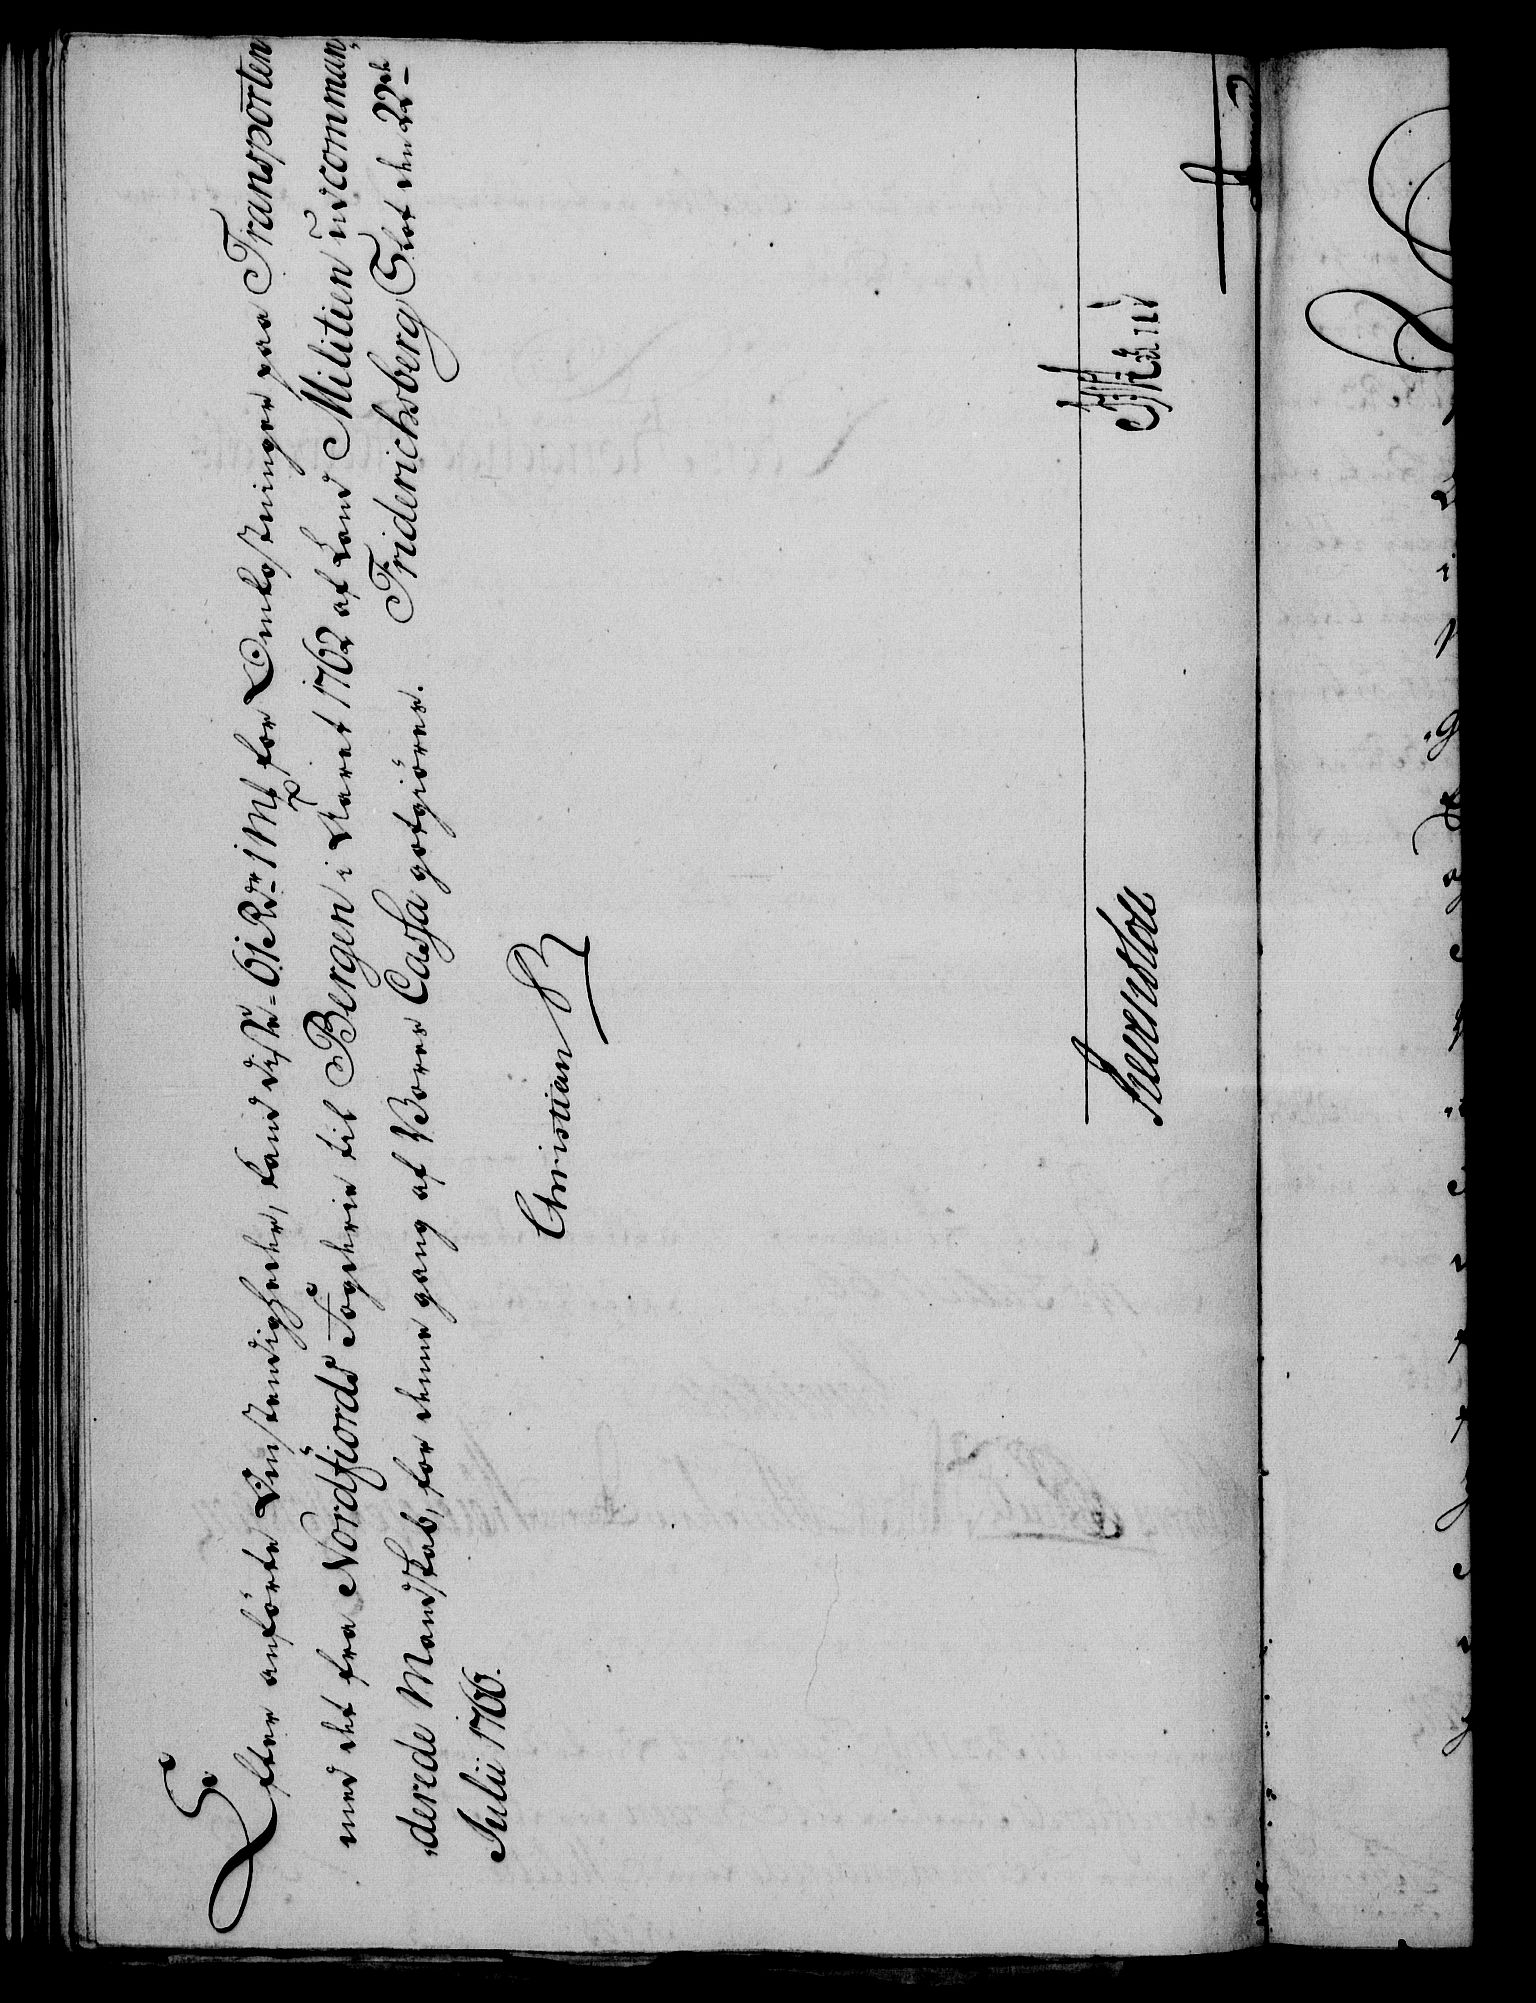 Efter anförte Omstændigheder, kand disse 61 Rdr 1 Mk for Omkostninger paa Transporten
med det fra Nordfiords Fogderie til Bergen i Aaret 1762 af Land Militien udcomman-
derede Mandskab, for denne gang af Vores Cassa godtgiöres. Friderichsberg Slot den 22de
Julii 1766.
Christian R